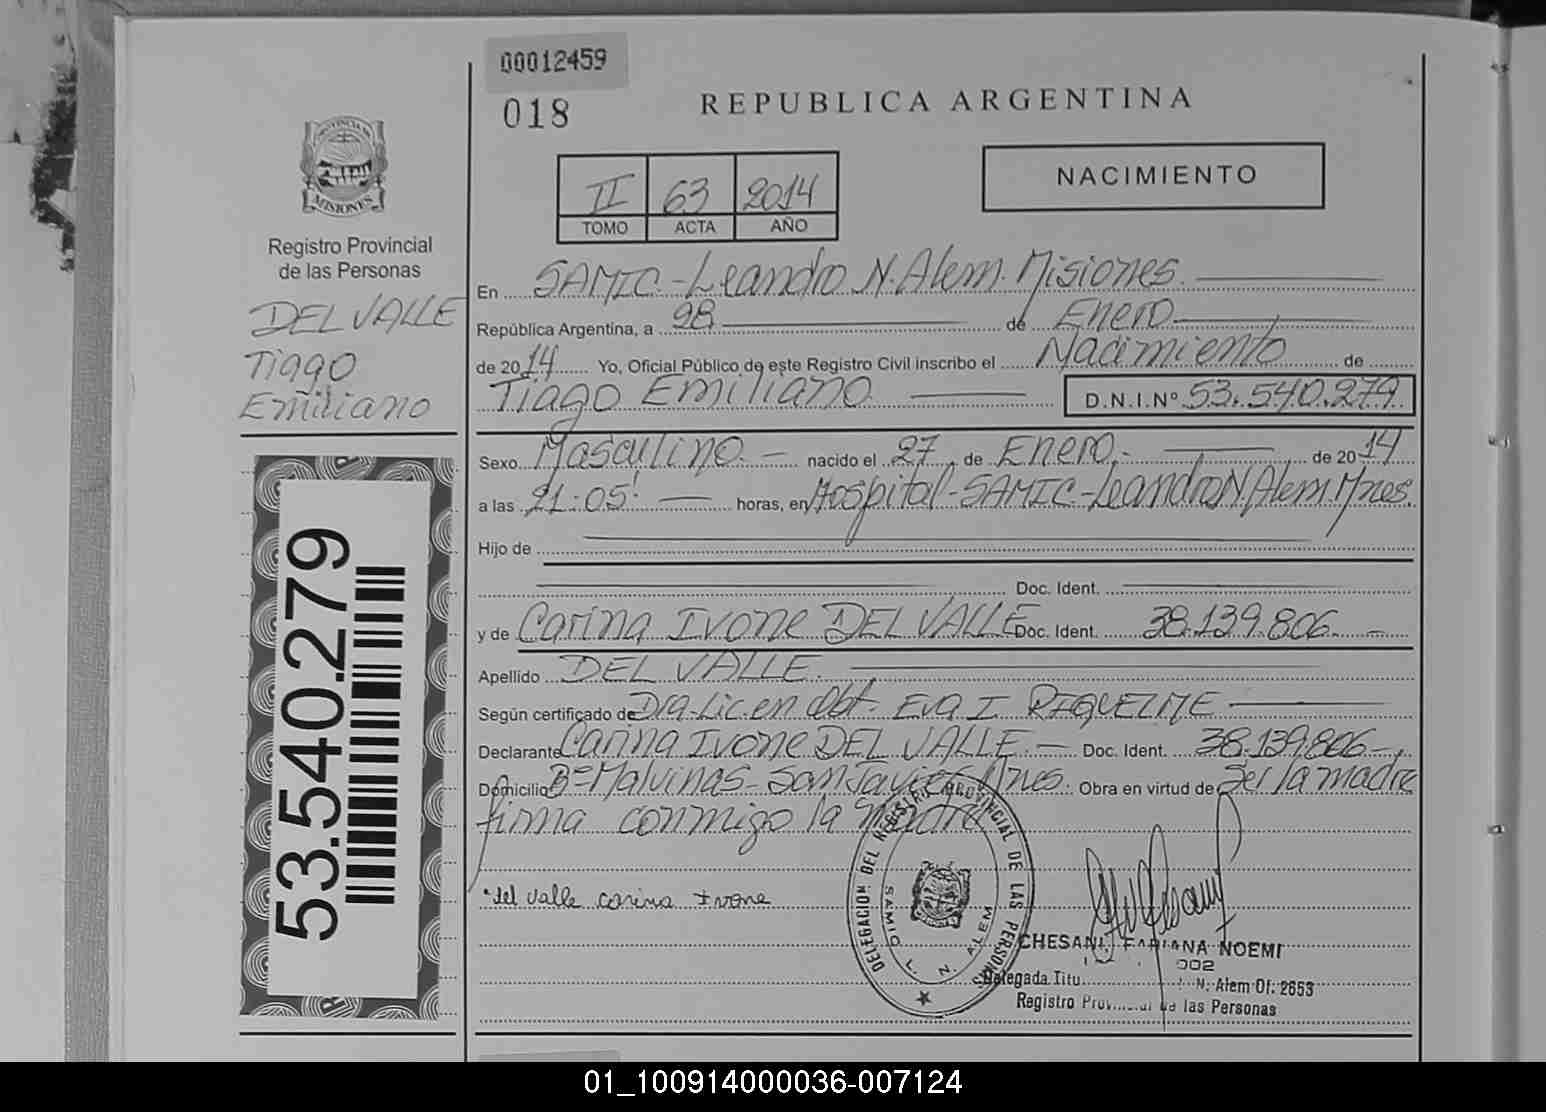 00012459
018
REPUBLICA ARGENTINA
PROVINCIA DE
MISIONES
Registro Provincial
de las Personas
DEL VALLE
Tiago
Emiliano
II 63 2014
TOMO ACTA AÑO
NACIMIENTO
En SAMIC-Leandro N. Alem. Misiones.
República Argentina, a 28 de Enero
de 2014 Yo, Oficial Público de este Registro Civil inscribo el Nacimiento de
Tiago Emiliano D.N.I.Nº 53.540.279
Sexo Masculino.- nacido el 27 de Enero.- de 2014
a las 21:05' horas, en Hospital-SAMIC-Leandro N. Alem. Mnes.
Hijo de
Doc. Ident.
y de Carina Ivone DEL VALLE Doc. Ident. 38.139.806.-
Apellido DEL VALLE.
Según certificado de Dra-Lic.en Obt. Eva I. RIQUELME
Declarante Carina Ivone DEL VALLE.- Doc. Ident. 38.139.806-.
Domicilio Bº Malvinas-San Javier Mnes. Obra en virtud de Ser la madre
firma conmigo la madre
del valle carina Ivone
53.540.279
DELEGACION DEL REGISTRO PROVINCIAL DE LAS PERSONAS
SAMIC L. N. ALEM
CHESANI, FABIANA NOEMI
002
Delegada Titu N. Alem Of. 2653
Registro Provincial de las Personas
01_100914000036-007124